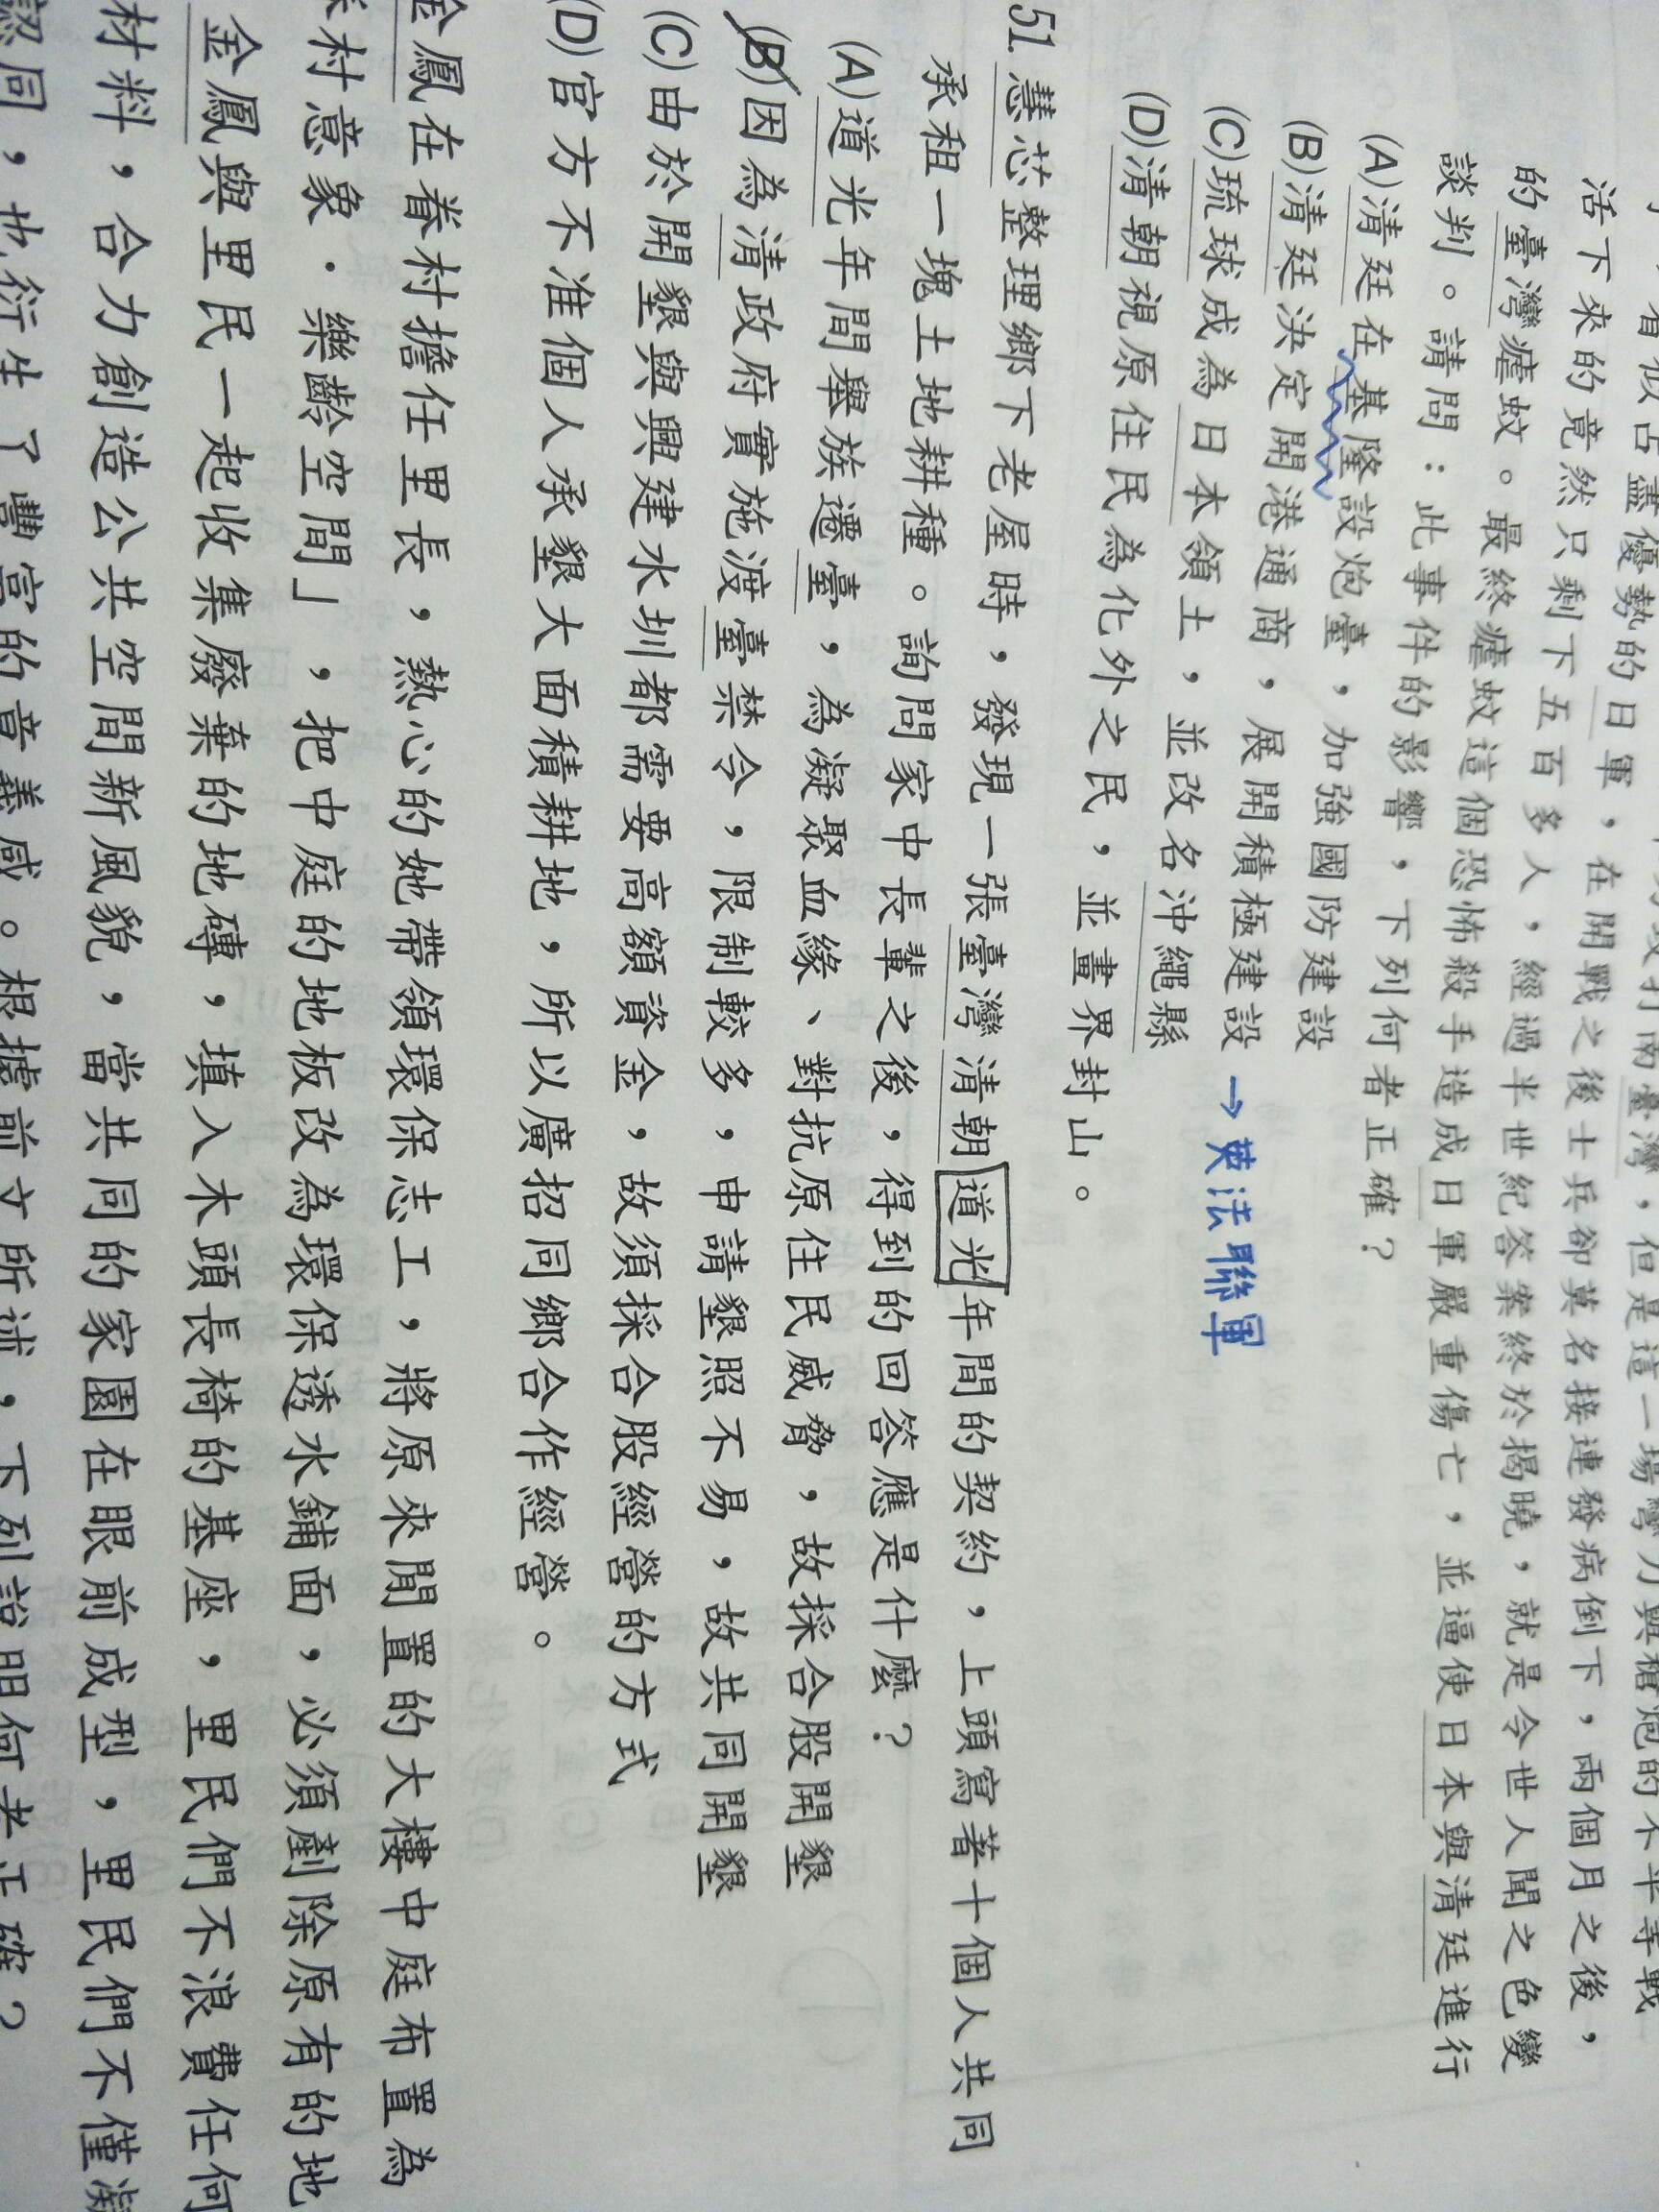 看似占盡優勢的日軍,在開戰之後士兵卻莫名接連發病倒下,兩個月之後,
活下來的竟然只剩下五百多人,經過半世紀答案終於揭曉,就是令世人聞之色變
的臺灣瘧蚊。最終瘧蚊這個恐怖殺手造成日軍嚴重傷亡,並逼使日本與清廷進行
談判。請問:此事件的影響,下列何者正確?
(A)清廷在基隆設炮臺,加強國防建設
(B)清廷決定開港通商,展開積極建設 →英法聯軍
(C)琉球成為日本領土,並改名沖繩縣
(D)清朝視原住民為化外之民,並畫界封山。
51.慧芯整理鄉下老屋時,發現一張臺灣清朝道光年間的契約,上頭寫著十個人共同
承租一塊土地耕種。詢問家中長輩之後,得到的回答應是什麼?
(A)道光年間舉族遷臺,為凝聚血緣、對抗原住民威脅,故採合股開墾
(B)因為清政府實施渡臺禁令,限制較多,申請墾照不易,故共同開墾
(C)由於開墾與興建水圳都需要高額資金,故須採合股經營的方式
(D)官方不准個人承墾大面積耕地,所以廣招同鄉合作經營。
金鳳在眷村擔任里長,熱心的她帶領環保志工,將原來閒置的大樓中庭布置為
村意象·樂齡空間」,把中庭的地板改為環保透水鋪面,必須剷除原有的地
金鳳與里民一起收集廢棄的地磚,填入木頭長椅的基座,里民們不浪費任何
材料,合力創造公共空間新風貌,當共同的家園在眼前成型,里民們不僅凝
認同,也衍生了豐富的意義感。根據前文所述,下列說明何者正確?